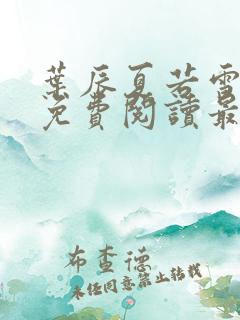 葉辰夏若雪
免費閱讀最
布查德
未經同意禁止轉載